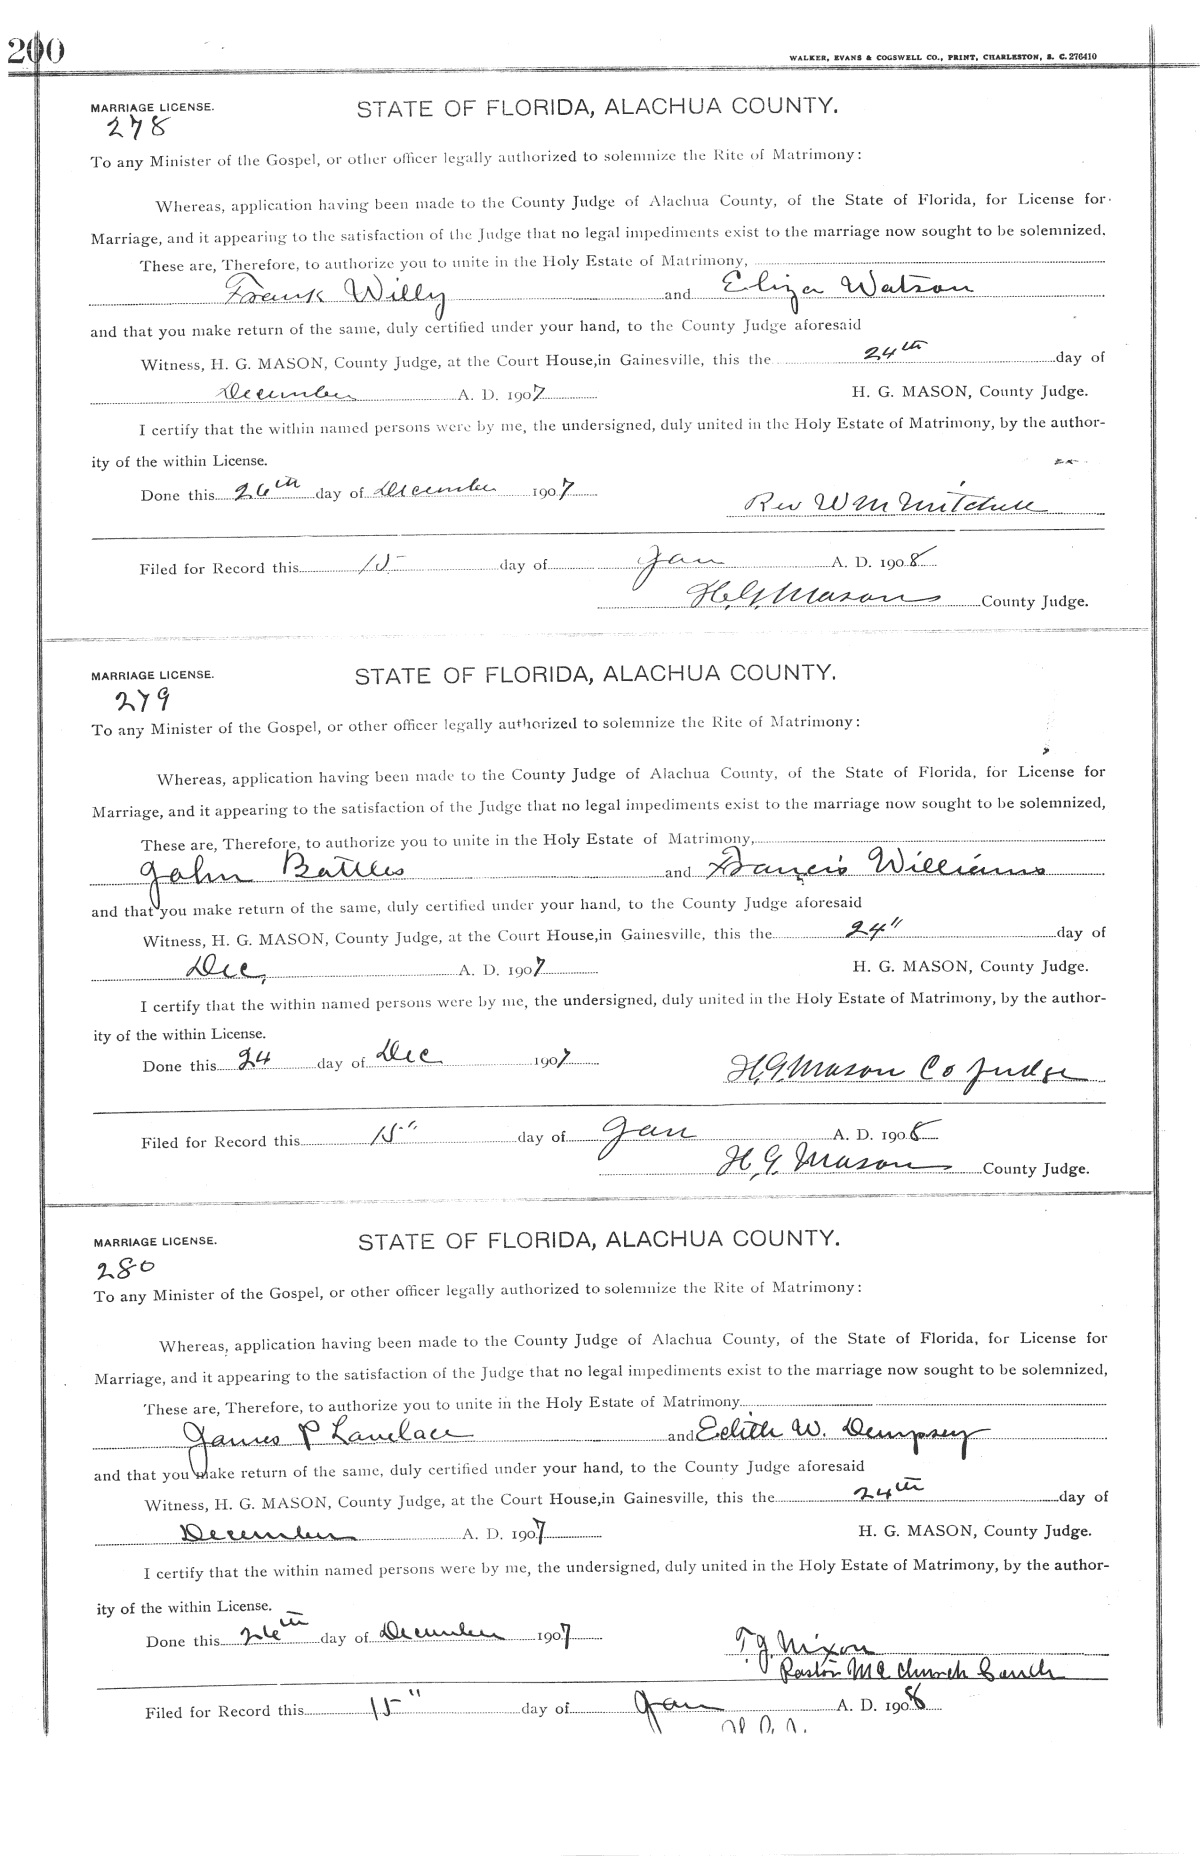 200
WALKER, EVANS & COGSWELL CO., PRINT, CHARLESTON, S. C. 276410
MARRIAGE LICENSE. STATE OF FLORIDA, ALACHUA COUNTY.
278
To any Minister of the Gospel, or other officer legally authorized to solemnize the Rite of Matrimony:
Whereas, application having been made to the County Judge of Alachua County, of the State of Florida, for License for
Marriage, and it appearing to the satisfaction of the Judge that no legal impediments exist to the marriage now sought to be solemnized,
These are, Therefore, to authorize you to unite in the Holy Estate of Matrimony,
Frank Willy and Eliza Watson
and that you make return of the same, duly certified under your hand, to the County Judge aforesaid
Witness, H. G. MASON, County Judge, at the Court House, in Gainesville, this the 24th day of
December A. D. 1907 H. G. MASON, County Judge.
I certify that the within named persons were by me, the undersigned, duly united in the Holy Estate of Matrimony, by the author-
ity of the within License.
Done this 26th day of December 1907
Rev W M Mitchell
Filed for Record this 15 day of Jan A. D. 1908
H. G. Mason County Judge.
MARRIAGE LICENSE. STATE OF FLORIDA, ALACHUA COUNTY.
279
To any Minister of the Gospel, or other officer legally authorized to solemnize the Rite of Matrimony:
Whereas, application having been made to the County Judge of Alachua County, of the State of Florida, for License for
Marriage, and it appearing to the satisfaction of the Judge that no legal impediments exist to the marriage now sought to be solemnized,
These are, Therefore, to authorize you to unite in the Holy Estate of Matrimony,
John Battles and Francis Williams
and that you make return of the same, duly certified under your hand, to the County Judge aforesaid
Witness, H. G. MASON, County Judge, at the Court House, in Gainesville, this the 24" day of
Dec, A. D. 1907 H. G. MASON, County Judge.
I certify that the within named persons were by me, the undersigned, duly united in the Holy Estate of Matrimony, by the author-
ity of the within License.
Done this 24 day of Dec 1907
H. G. Mason Co Judge
Filed for Record this 15" day of Jan A. D. 1908
H. G. Mason County Judge.
MARRIAGE LICENSE. STATE OF FLORIDA, ALACHUA COUNTY.
280
To any Minister of the Gospel, or other officer legally authorized to solemnize the Rite of Matrimony:
Whereas, application having been made to the County Judge of Alachua County, of the State of Florida, for License for
Marriage, and it appearing to the satisfaction of the Judge that no legal impediments exist to the marriage now sought to be solemnized,
These are, Therefore, to authorize you to unite in the Holy Estate of Matrimony
James P Lovelace and Edith W. Dempsey
and that you make return of the same, duly certified under your hand, to the County Judge aforesaid
Witness, H. G. MASON, County Judge, at the Court House, in Gainesville, this the 24th day of
December A. D. 1907 H. G. MASON, County Judge.
I certify that the within named persons were by me, the undersigned, duly united in the Holy Estate of Matrimony, by the author-
ity of the within License.
Done this 26th day of December 1907
T. J. Nixon
Pastor M E Church
Filed for Record this 15" day of Jan A. D. 1908